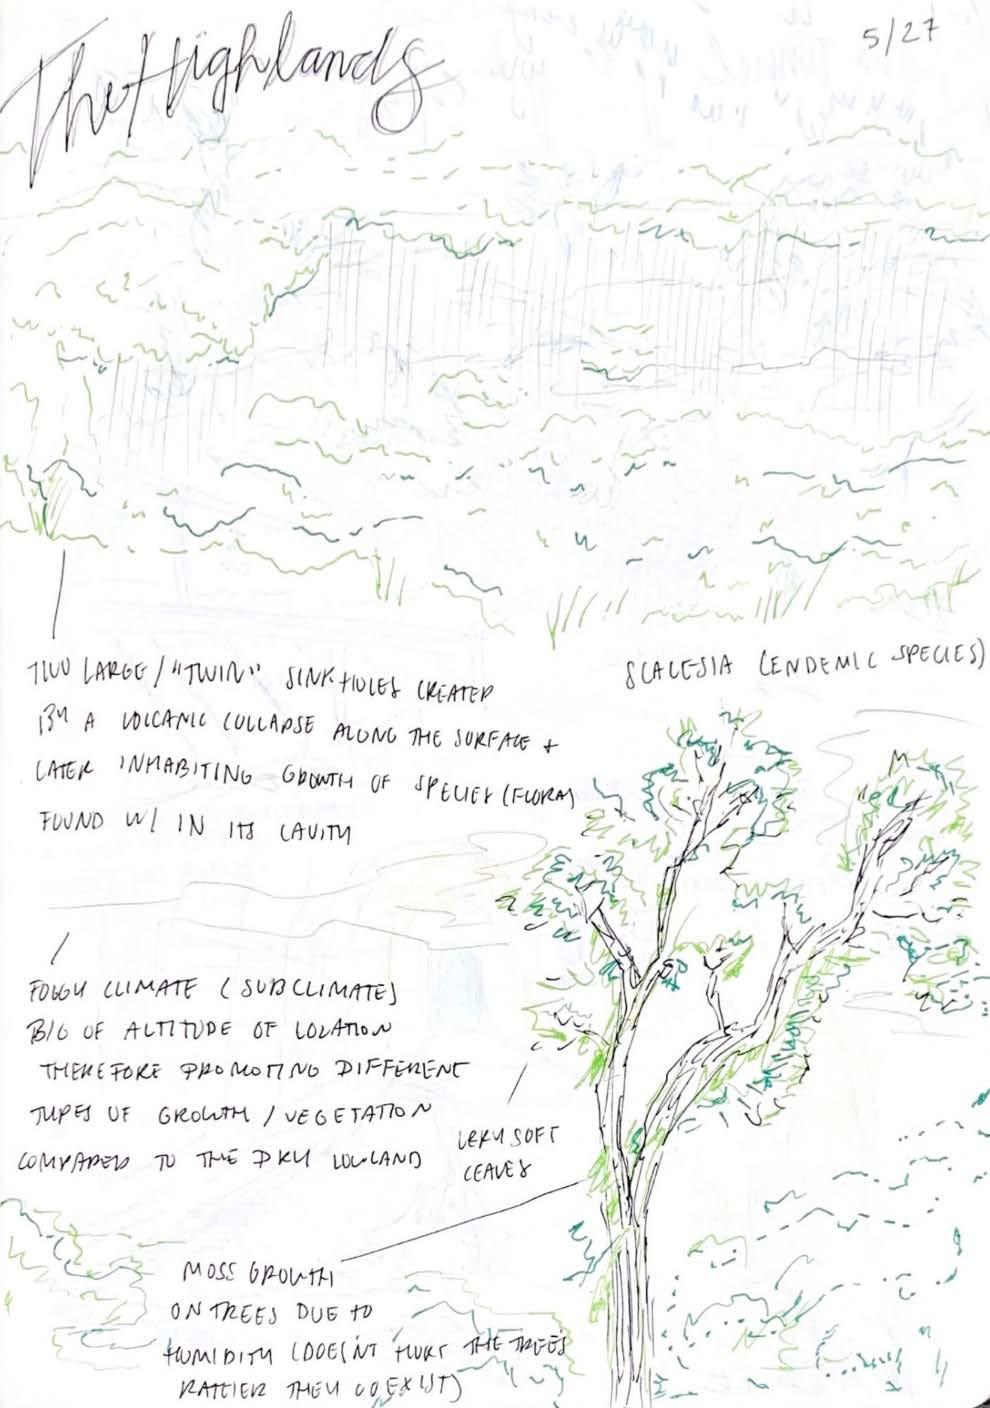 The Highlands
5/27
TWO LARGE / "TWIN" SINKHOLES CREATED
BY A VOLCANIC COLLAPSE ALONG THE SURFACE +
LATER INHABITING GROWTH OF SPECIES (FLORA)
FOUND W/ IN ITS CAVITY
SCALESIA (ENDEMIC SPECIES)
FOGGY CLIMATE (SUBCLIMATE)
B/C OF ALTITUDE OF LOCATION
THEREFORE PROMOTING DIFFERENT
TYPES OF GROWTH / VEGETATION
COMPARED TO THE DRY LOWLAND
VERY SOFT
LEAVES
MOSS GROWTH
ON TREES DUE TO
HUMIDITY (DOESN'T HURT THE TREES
RATHER THEY COEXIST)